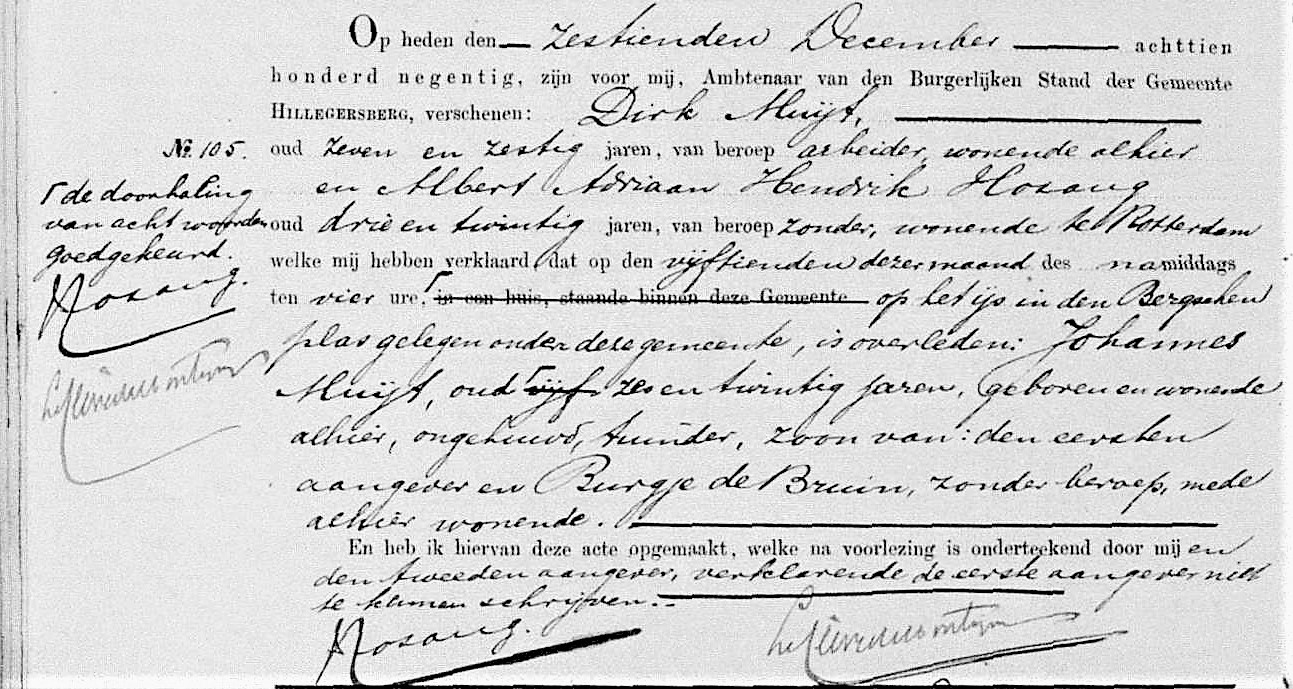 Op heden den zestienden December achttien
honderd negentig, zijn voor mij, Ambtenaar van den Burgerlijken Stand der Gemeente
HILLEGERSBERG, verschenen: Dirk Muijt,
No. 105. oud zeven en zestig jaren, van beroep arbeider, wonende alhier
en Albert Adriaan Hendrik Hosang
oud drie en twintig jaren, van beroep zonder, wonende te Rotterdam
welke mij hebben verklaard, dat op den vijftienden dezer maand des namiddags
ten vier ure, in een huis, staande binnen deze Gemeente op het ijs in den Bergschen
plas gelegen onder deze gemeente, is overleden: Johannes
Muijt, oud vijf zes en twintig jaren, geboren en wonende
alhier, ongehuwd, tuinder, zoon van: den eersten
aangever en Burgje de Bruin, zonder beroep, mede
alhier wonende.
En heb ik hiervan deze acte opgemaakt, welke na voorlezing is onderteekend door mij en
den tweeden aangever, verklarende de eerste aangever niet
te kunnen schrijven.
Hosang.
de doorhaling
van acht woorden
goedgekeurd.
Hosang.